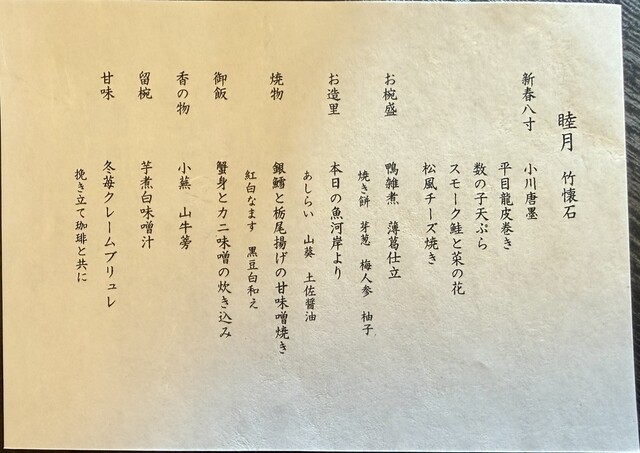 睦月 竹懐石
新春八寸 小川唐墨
平目龍皮巻き
数の子天ぷら
スモーク鮭と菜の花
松風チーズ焼き
お椀盛 鴨雑煮 薄葛仕立
焼き餅 芽葱 梅人参 柚子
お造里 本日の魚河岸より
あしらい 山葵 土佐醤油
焼物 銀鱈と栃尾揚げの甘味噌焼き
紅白なます 黒豆白和え
御飯 蟹身とカニ味噌の炊き込み
香の物 小蕪 山牛蒡
留椀 芋煮白味噌汁
甘味 冬苺クレームブリュレ
挽き立て珈琲と共に